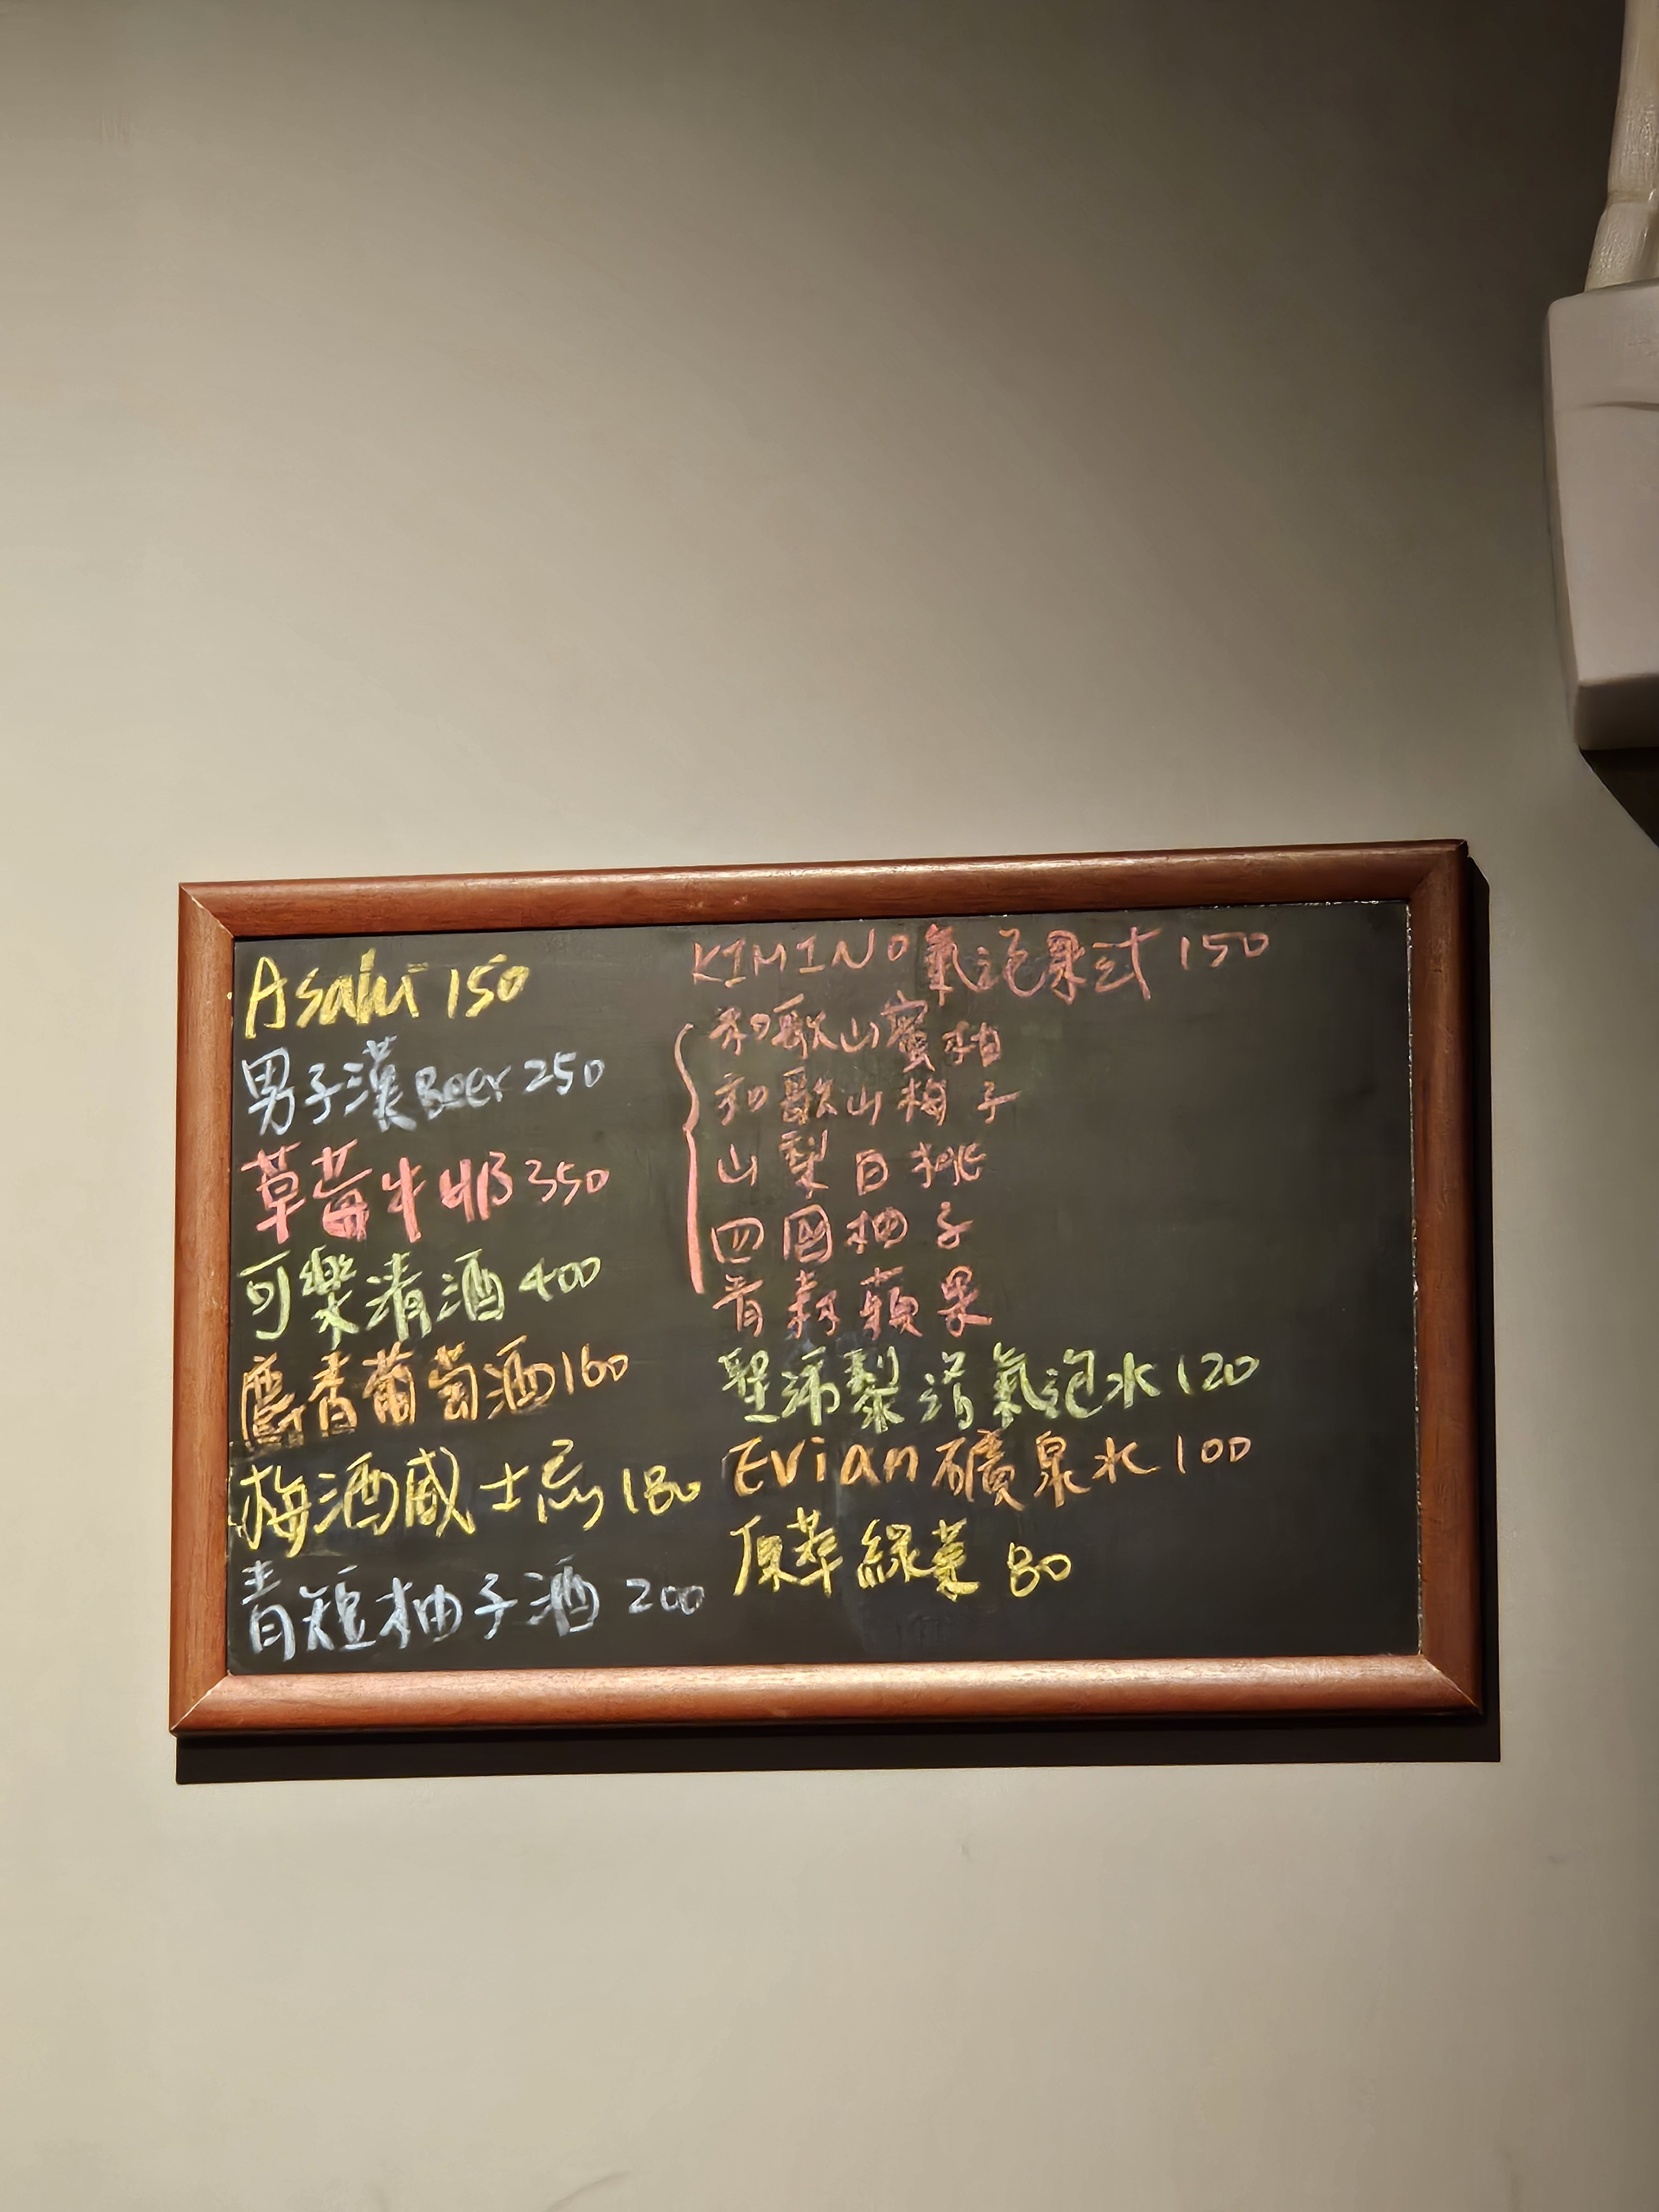 Asahi 150
男子漢Beer 250
草莓牛奶 350
可樂清酒 400
麝香葡萄酒 160
梅酒威士忌 180
青短柚子酒 200
KIMINO氣泡果汁 150
和歌山蜜柑
和歌山梅子
山梨白桃
四國柚子
青森蘋果
聖沛黎洛氣泡水 120
Evian 礦泉水 100
原萃綠茶 80